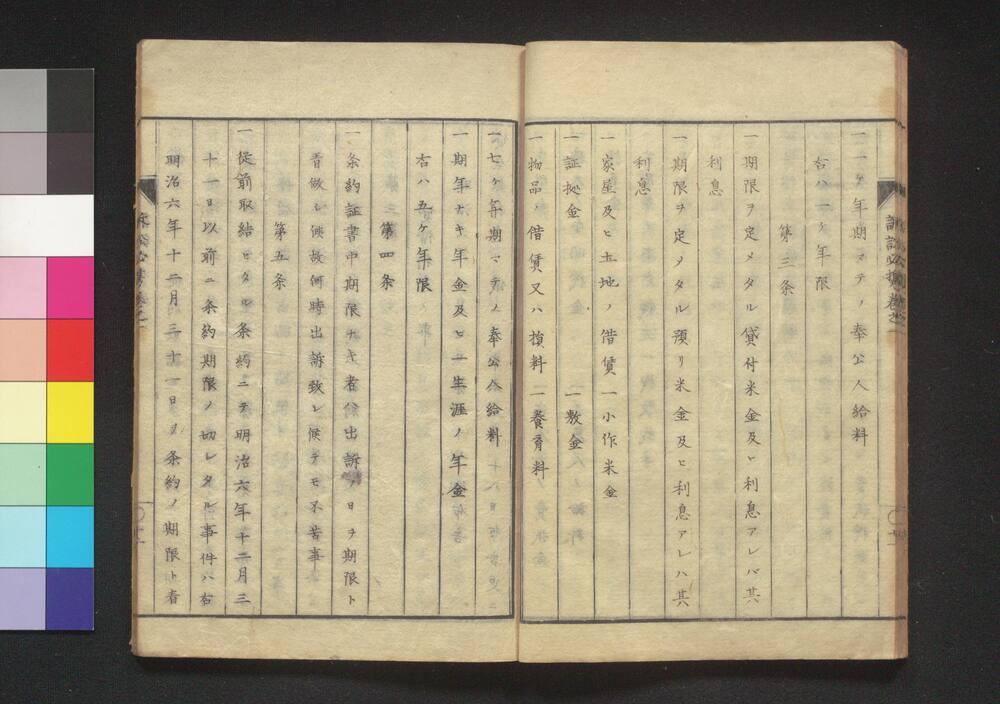 一一ケ年期マテノ奉公人給料
右ハ一ケ年限
第三条
一期限ヲ定メタル貸付米金及ヒ利息アレバ其
利息
一期限ヲ定メタル預リ米金及ヒ利息アレハ其
利息
一家屋及ヒ土地ノ借賃一小作米金
一証拠金一敷金
一物品ノ借賃又ハ損料一養育料
一七ケ年期マテノ奉公人給料
一期年ナキ年金及ヒ一生涯ノ年金
右ハ五ケ年限
第四条
一条約証書中期限ナキ者ハ出訴ノ日ヲ期限ト
看做シ候故何時出訴致シ候テモ不苦事
第五条
一従前取結ヒタル条約ニテ明治六年十二月三
十一日以前ニ条約期限ノ切レタル事件ハ右
明治六年十二月三十一日ヲ条約ノ期限ト看